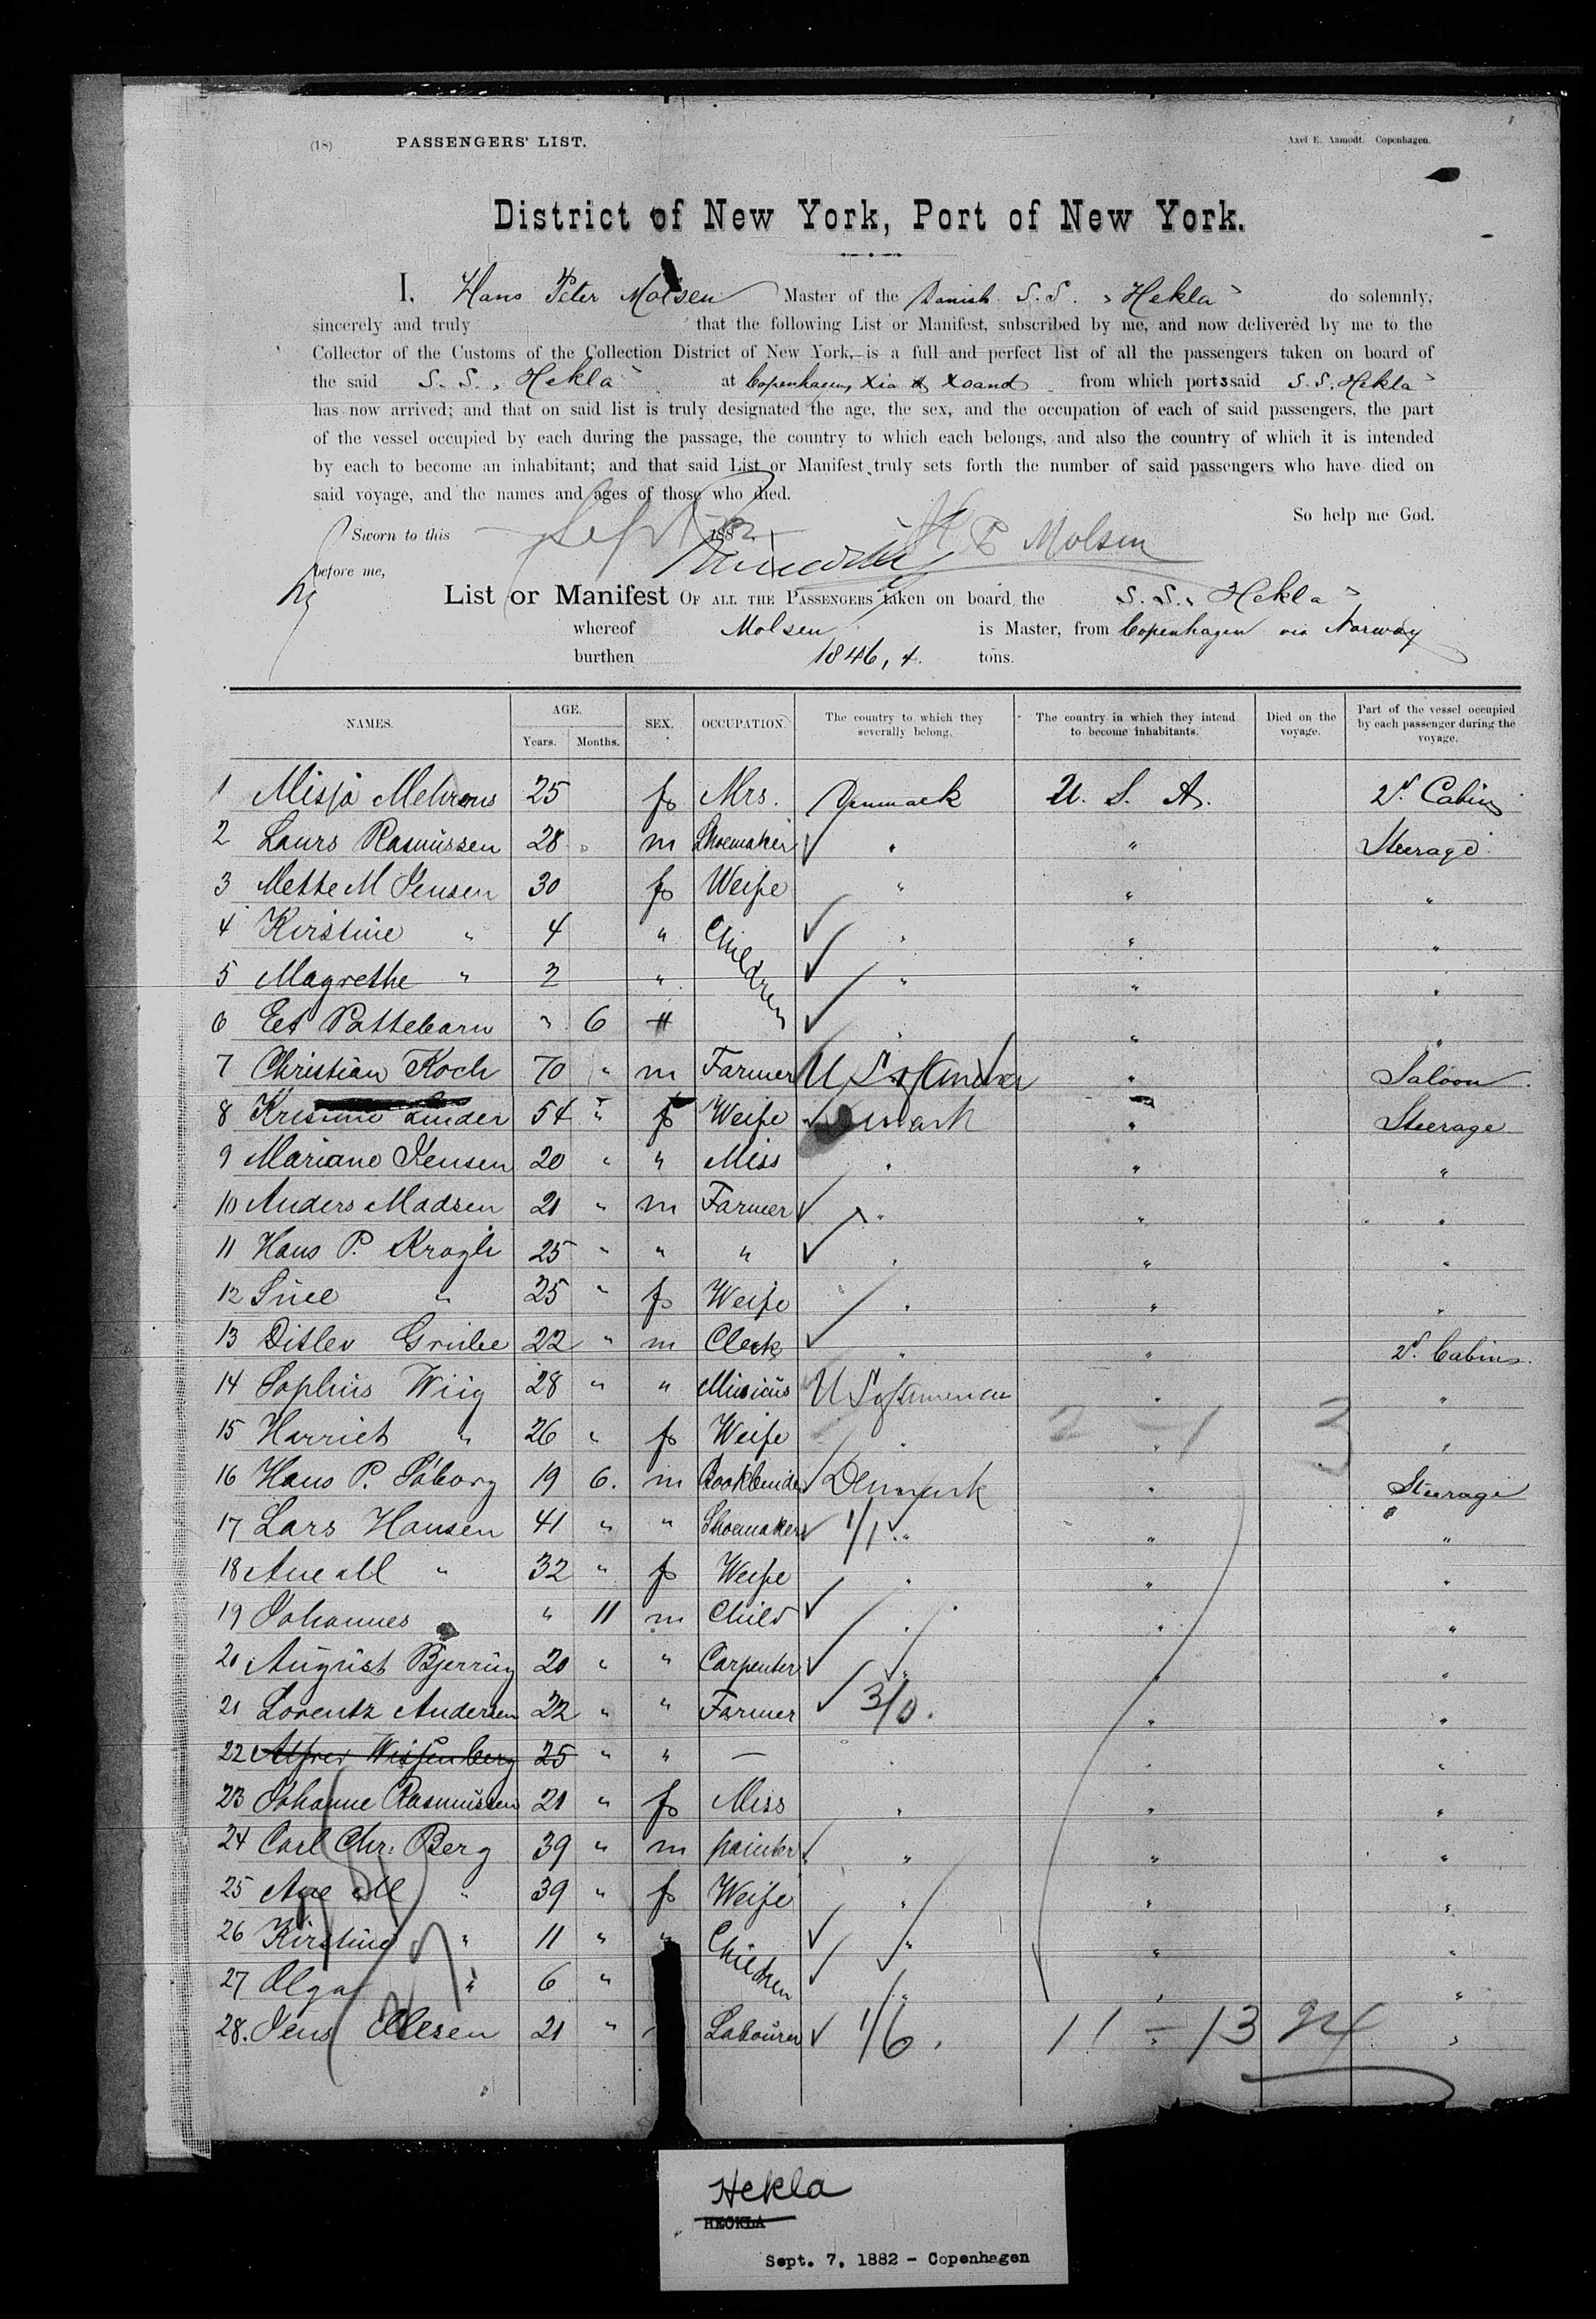 (18) PASSENGERS' LIST. Axel E. Aamodt. Copenhagen.
District of New York, Port of New York.
I, Hans Peter Molsen Master of the Danish S.S. „Hekla" do solemnly,
sincerely and truly that the following List or Manifest, subscribed by me, and now delivered by me to the
Collector of the Customs of the Collection District of New York, is a full and perfect list of all the passengers taken on board of
the said S.S. „Hekla" at Copenhagen, Xia & Xsand from which ports said S.S. Hekla"
has now arrived; and that on said list is truly designated the age, the sex, and the occupation of each of said passengers, the part
of the vessel occupied by each during the passage, the country to which each belongs, and also the country of which it is intended
by each to become an inhabitant; and that said List or Manifest truly sets forth the number of said passengers who have died on
said voyage, and the names and ages of those who died.
So help me God.
Sworn to this Sept 7 1882 H P Molsen
before me,
List or Manifest OF ALL THE PASSENGERS taken on board the S.S. „Hekla"
whereof Molsen is Master, from Copenhagen via Norway
burthen 1846,4. tons.
NAMES. AGE. Years. Months. SEX. OCCUPATION. The country to which they severally belong. The country in which they intend to become inhabitants. Died on the voyage. Part of the vessel occupied by each passenger during the voyage.
1 Misja Mehrens 25 f Mrs. Denmark U. S. A. 2d. Cabins
2 Laurs Rasmussen 28 " m Shoemaker " " Steerage
3 Mette M Jensen 30 f Weife " " "
4 Kirstine " 4 " Children " " "
5 Magrethe " 2 " " " "
6 Et Pattebarn " 6 " " " "
7 Christian Koch 70 " m Farmer U S of America " Saloon
8 Kristine Linder 54 " f Weife Denmark " Steerage
9 Mariane Jensen 20 " " Miss " " "
10 Anders Madsen 21 " m Farmer " " "
11 Hans P. Krogh 25 " " " " " "
12 Sine " 25 " f Weife " " "
13 Ditlev Grube 22 " m Clerk " " 2d. Cabins
14 Sophus Wiig 28 " " Musicus U S of America " "
15 Harriet " 26 " f Weife " " "
2 - 1 3
16 Hans P. Söborg 19 6. m Bookbinder Denmark " Steerage
17 Lars Hansen 41 " " Shoemaker 1/1 " " "
18 Ane M " 32 " f Weife " " "
19 Johannes " 11 m Child " " "
20 August Bjerring 20 " " Carpenter " " "
21 Lorentz Andersen 22 " " Farmer 3/0. " "
22 Alfred Wissenberg 25 " " — " " "
23 Johanne Rasmussen 21 " f Miss " " "
24 Carl Chr. Berg 39 " m painter " " "
25 Ane M " 39 " f Weife " " "
26 Kirstine " 11 " " Children " " "
27 Olga " 6 " " " "
28. Jens Olesen 21 " Labourer 1/6. 11 - 13 24 "
Hekla
HECKLA
Sept. 7, 1882 - Copenhagen